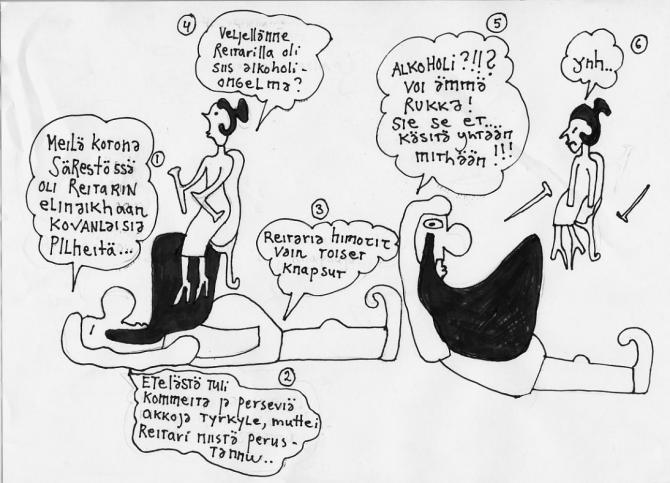 1
MEILÄ KOTONA
SÄRESTÖSSÄ
OLI REITARIN
ELINAIKHAAN
KOVANLAISIA
PILHEITÄ...
2
ETELÄSTÄ TULI
KOMMEITA JA PERSEVIÄ
AKKOJA TYRKYLE, MUTTEI
REITARI NIISTÄ PERUS-
TANNU..
3
REITARIA HIMOTIT
VAIN TOISET
KNAPSUT
4
VELJELLÄNNE
REITARILLA OLI
SIIS ALKOHOLI-
ONGELMA?
5
ALKOHOLI?!!?
VOI ÄMMÄ
RUKKA!
SIE SE ET...
KÄSITÄ YHTÄÄN
MITHÄÄN !!!
6
YHH..